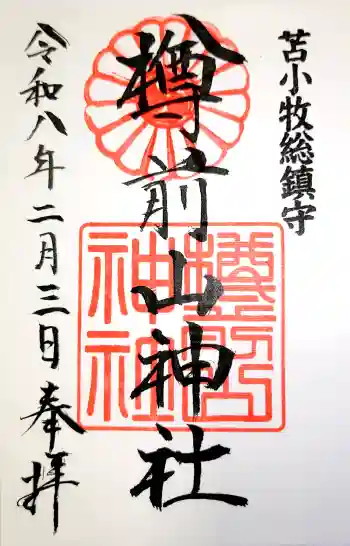 苫小牧総鎮守
樽前山神社
樽前山
神社
令和八年二月三日奉拝